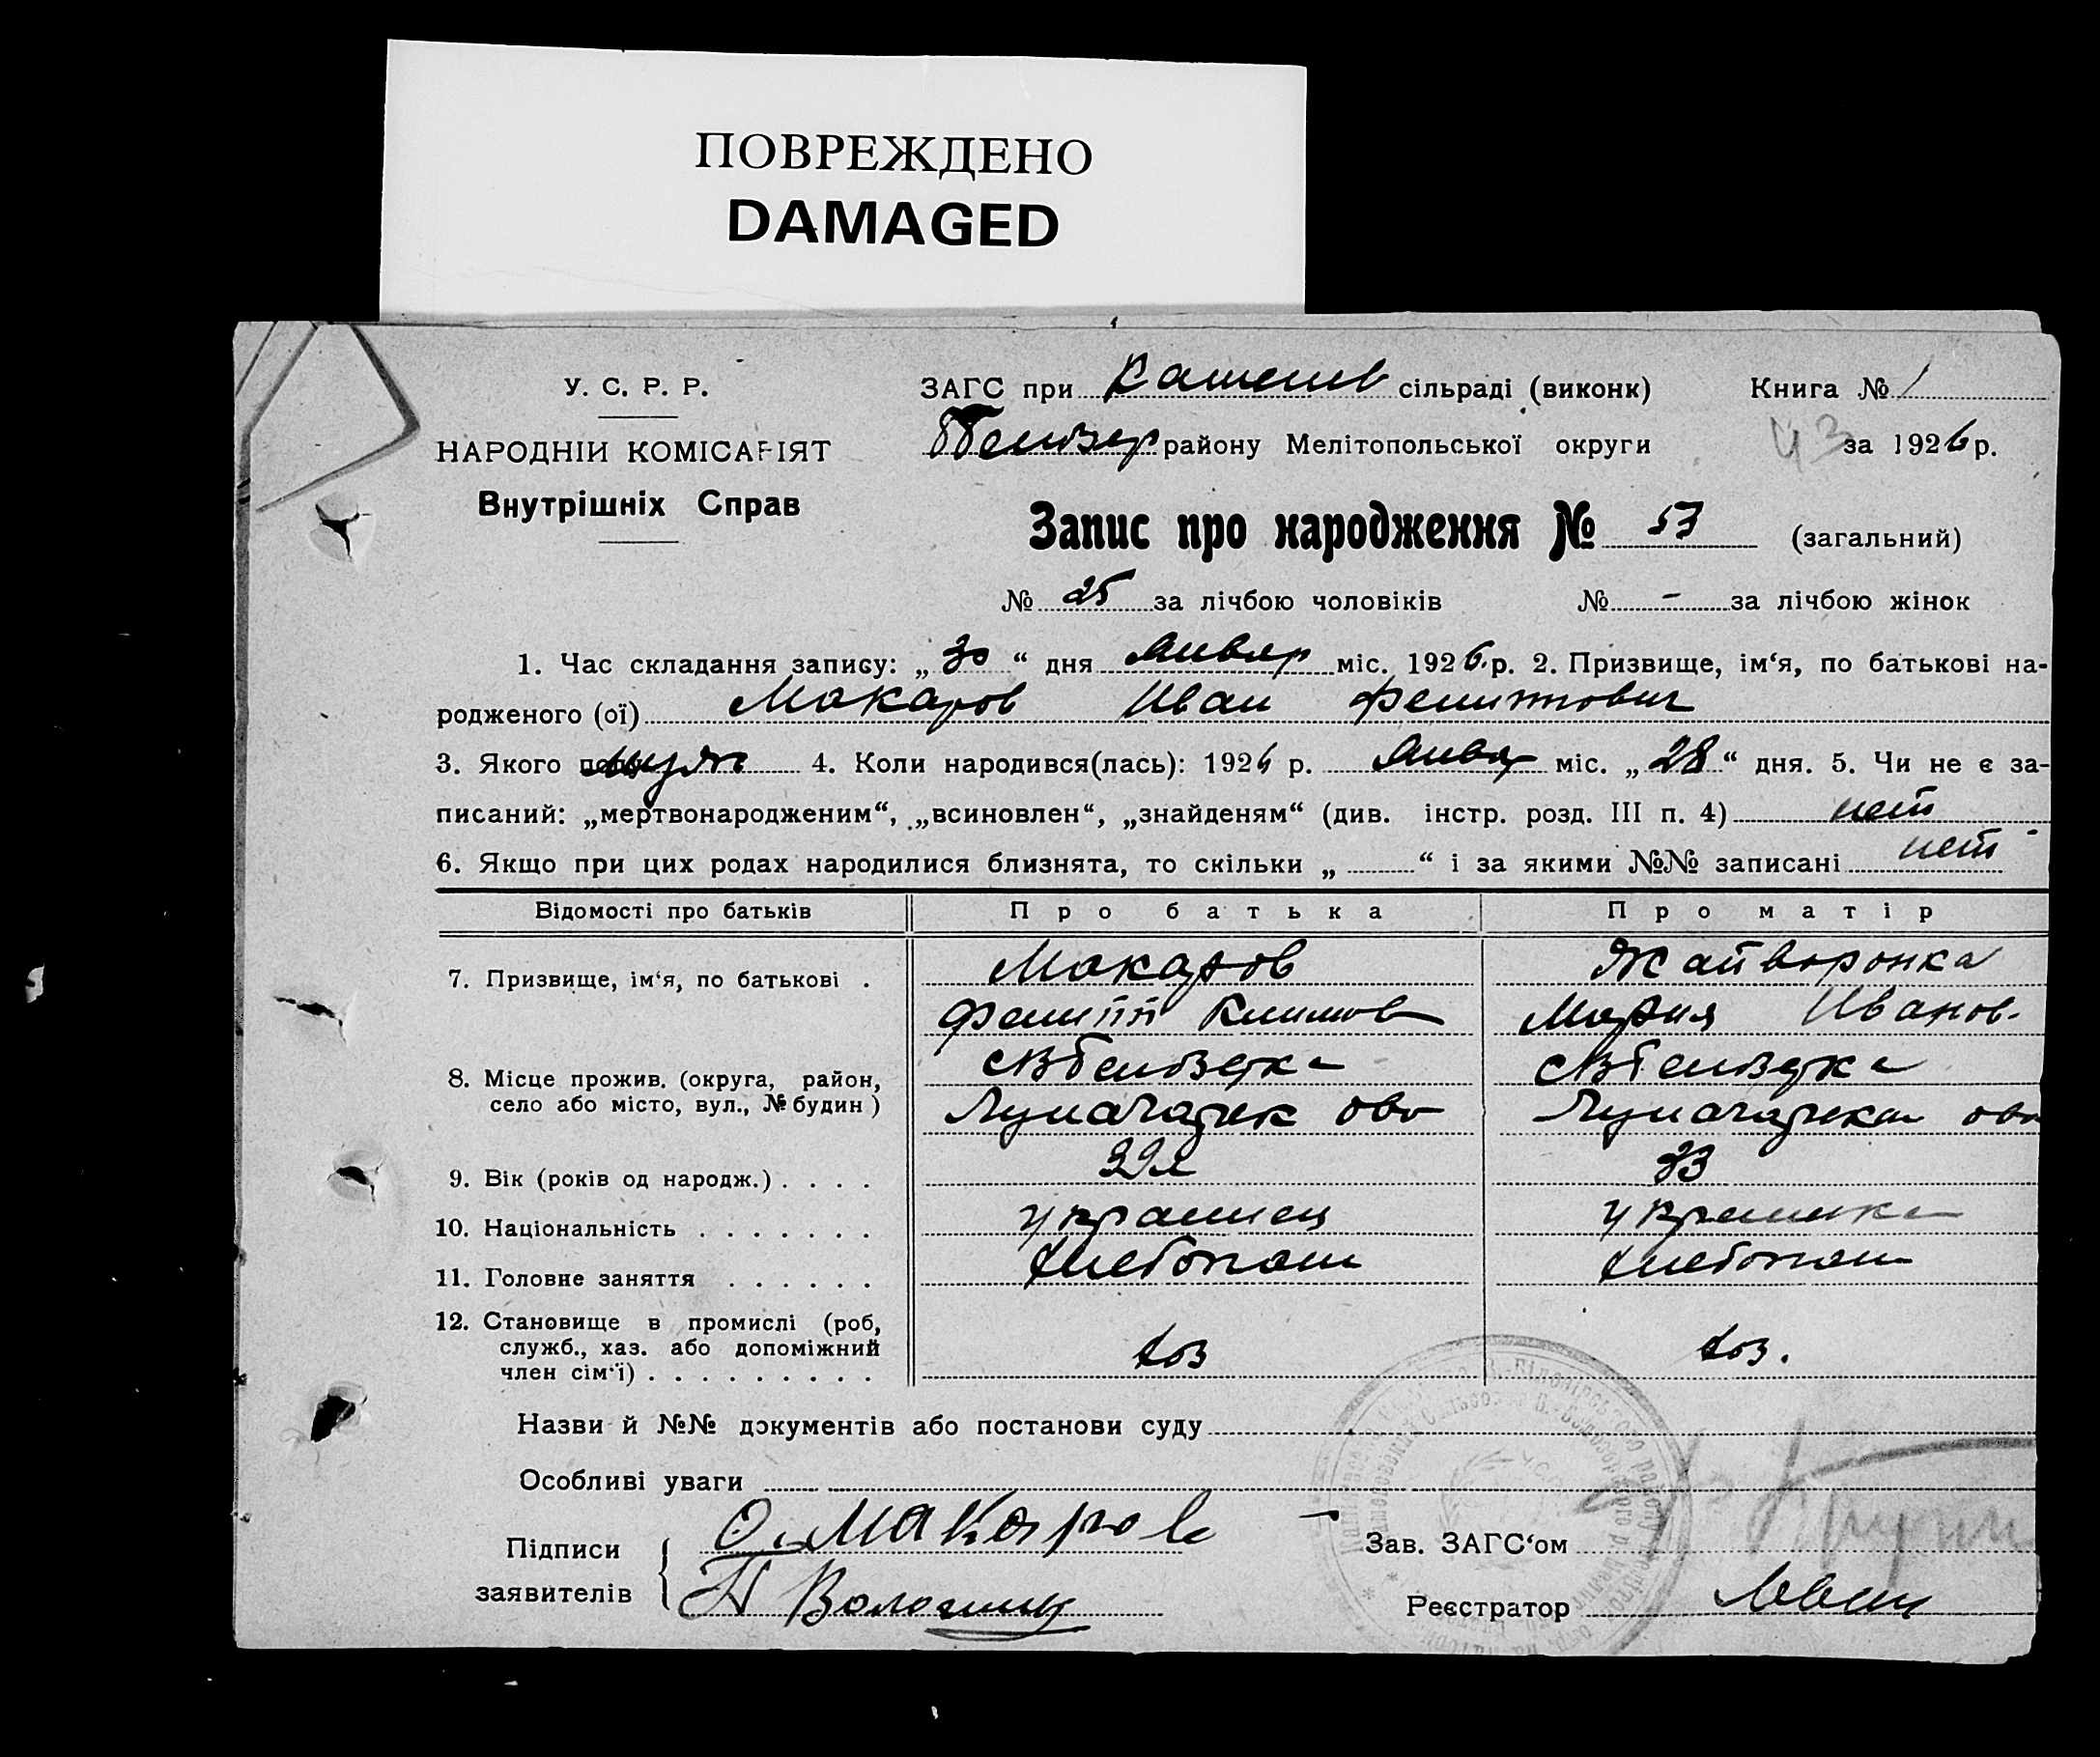 ПОВРЕЖДЕНО
DAMAGED
У. С. Р. Р.
НАРОДНІЙ КОМІСАРІЯТ
Внутрішніх Справ
ЗАГС при сільраді (виконк) Книга № 1
району Мелітопольської округи 43 за 1926 р.
Запис про народження № 53 (загальний)
№ 25 за лічбою чоловіків № - за лічбою жінок
1. Час складання запису: „30“ дня Январ міс. 1926 р. 2. Призвище, ім‘я, по батькові на-
родженого (ої) Макаров Иван Филиппович
3. Якого полу муж 4. Коли народився(лась): 1926 р. Январ міс. „28“ дня. 5. Чи не є за-
писаний: „мертвонародженим“, „всиновлен“, „знайденям“ (див. інстр. розд. III п. 4) нет
6. Якщо при цих родах народилися близнята, то скільки „ “ і за якими №№ записані нет
Відомості про батьків Про батька Про матір
7. Призвище, ім‘я, по батькові . Макаров Жайворонка
Филипп Климов Мария Иванов.
8. Місце прожив. (округа, район,
село або місто, вул., № будин)
9. Вік (років од народж.) . . . . 33
10. Національність . . . . . . . украинец украинка
11. Головне заняття . . . . . . хлебопаш хлебопаш
12. Становище в промислі (роб,
служб., хаз. або допоміжний
член сім‘ї) . . . . . . . . . хоз хоз.
Назви й №№ документів або постанови суду
Особливі уваги
Підписи
заявителів
Макаров
Зав. ЗАГС‘ом
Реєстратор